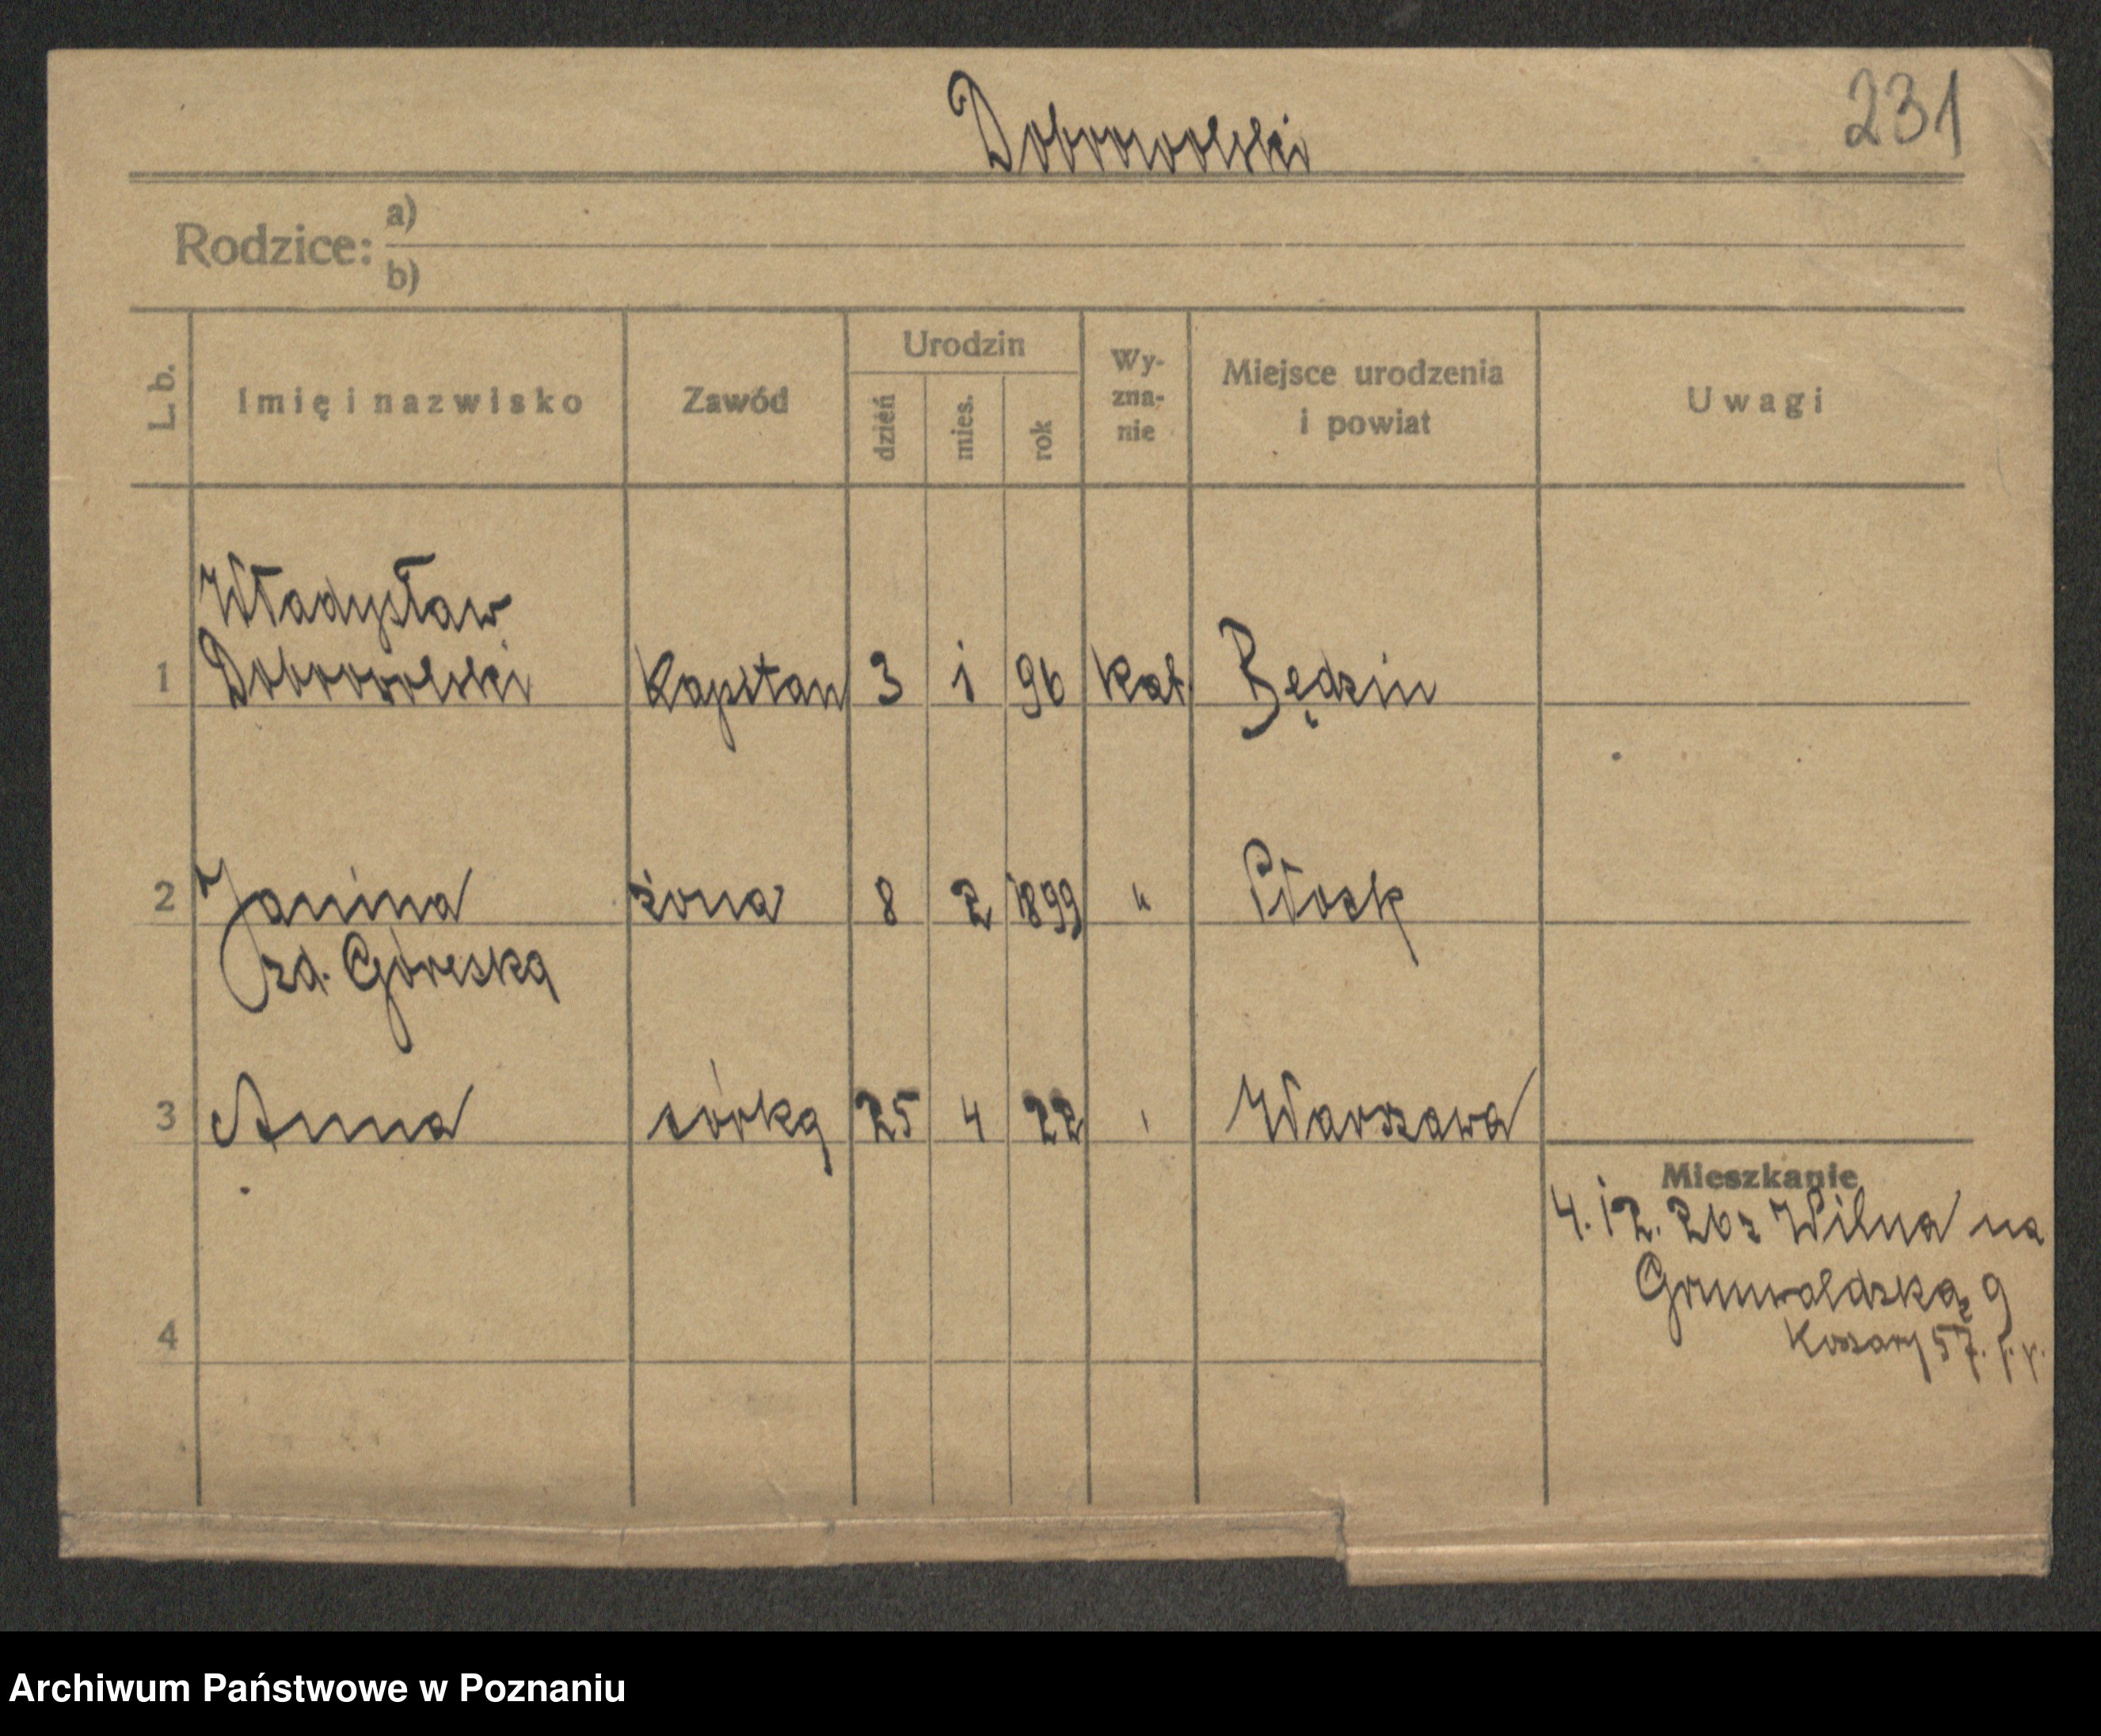 Dobrowolski
231
Rodzice: a)
b)
L. b.
Imię i nazwisko
Zawód
Urodzin
dzień
mies.
rok
Wy-
zna-
nie
Miejsce urodzenia
i powiat
Uwagi
Władysław
1 Dobrowolski Kapitan 3 1 96 kat. Będzin
2 Janina żona 8 2 1899 " Płock
zd. Góreska
3 Anna córka 25 4 22 Warszawa
Mieszkanie
4. 12. 26 z Wilna na
Grunwaldzką 9
Koszary 57. p. p.
4
Archiwum Państwowe w Poznaniu